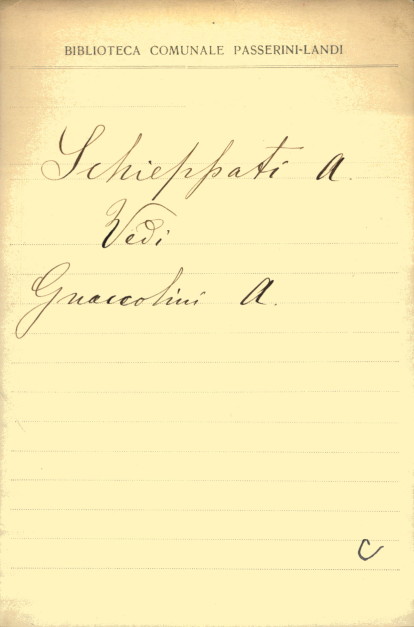 BIBLIOTECA COMUNALE PASSERINI-LANDI
Schieppati A.
Vedi
Gnaccolini A.
C